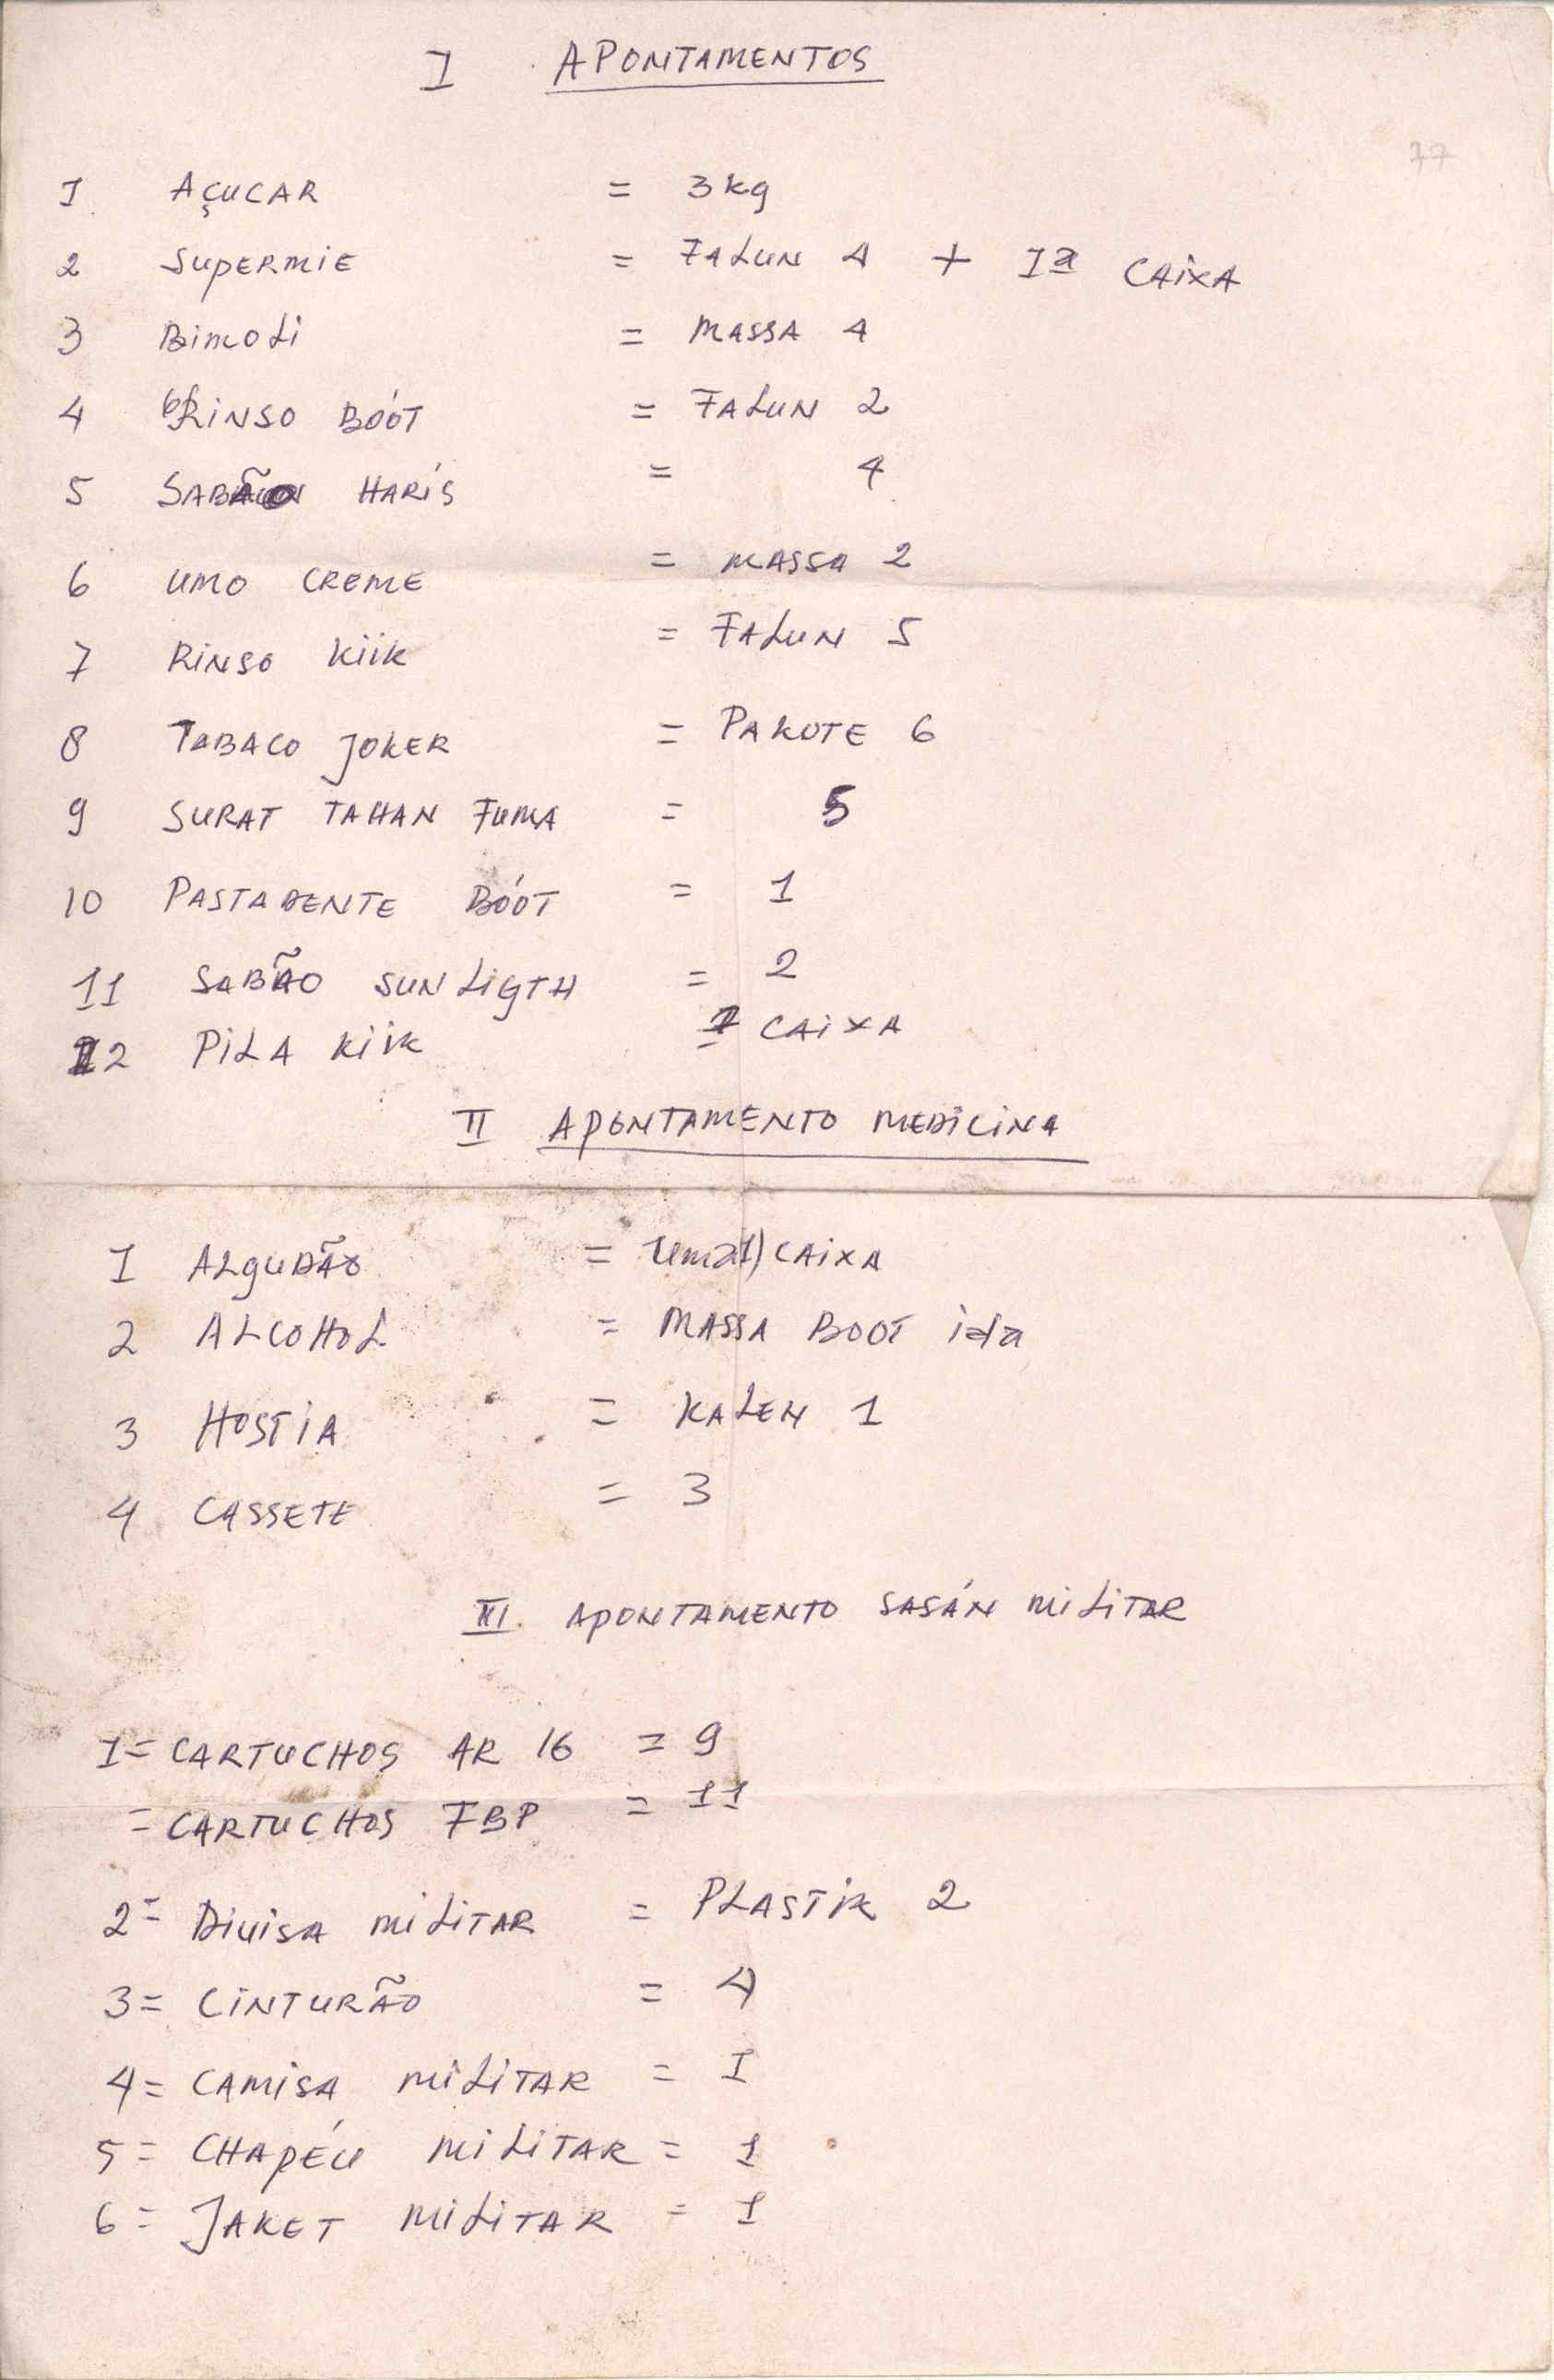 I APONTAMENTOS
77
I AÇUCAR = 3 kg
2 SUPERMIE = FALUN 4 + Iª CAIXA
3 BIMOLI = MASSA 4
4 RINSO BÓOT = FALUN 2
5 SABÃO HARÍS = 4
6 UMO CREME = MASSA 2
7 RINSO KIIK = FALUN 5
8 TABACO JOKER = PAKOTE 6
9 SURAT TAHAN FUMA = 5
10 PASTADENTE BÓOT = 1
11 SABÃO SUNLIGTH = 2
12 PILA KIIK = 1 CAIXA
II APONTAMENTO MEDICINA
I ALGUDÃO = Uma(1) CAIXA
2 ALCOHOL = MASSA BOOT ida
3 HOSTIA = KALEN 1
4 CASSETE = 3
III. APONTAMENTO SASÁN MILITAR
I = CARTUCHOS AR 16 = 9
= CARTUCHOS FBP = 11
2 = DIVISA MILITAR = PLASTIK 2
3 = CINTURÃO = 4
4 = CAMISA MILITAR = I
5 = CHAPÉU MILITAR = 1
6 = JAKET MILITAR = 1